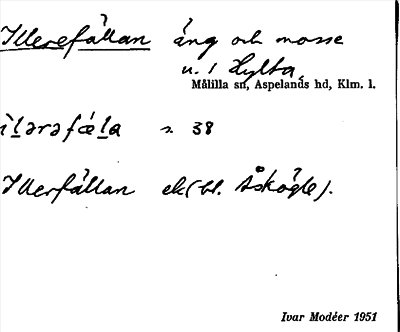 Illerefällan äng och mosse
u. 1 Hylta,
Målilla sn, Aspelands hd, Klm. l.
ìl̲ərəfǽl̲a s. 38
Illerfällan ek (bl. Åskögle).
Ivar Modéer 1951